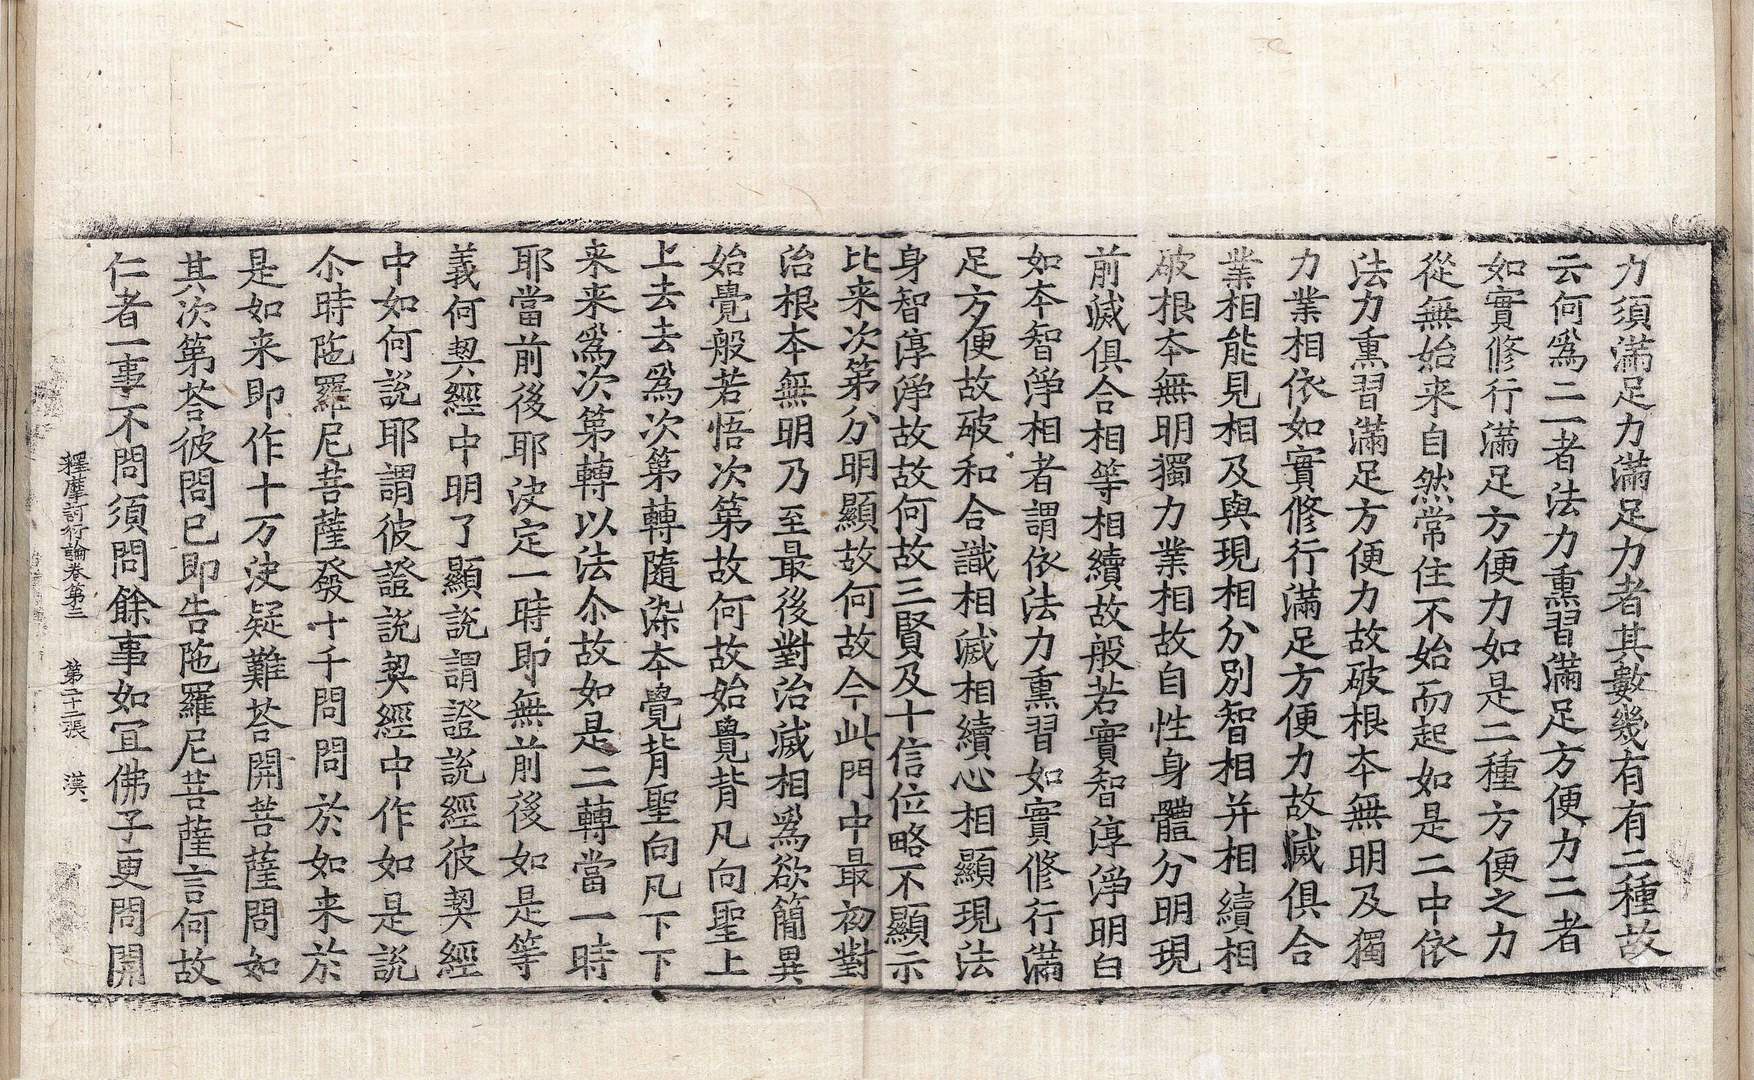 力須滿足力滿足力者其數幾有有二種故
云何爲二一者法力熏習滿足方便力二者
如實修行滿足方便力如是二種方便之力
從無始来自然常住不始而起如是二中依
法力熏習滿足方便力故破根本無明及獨
力業相依如實修行滿足方便力故滅俱合
業相能見相及與現相分別智相并相續相
破根本無明獨力業相故自性身體分明現
前滅俱合相等相續故般若實智淳淨明白
如本智淨相者謂依法力熏習如實修行滿
足方便故破和合識相滅相續心相顯現法
身智淳淨故故何故三賢及十信位略不顯示
比来次第分明顯故何故今此門中最初對
治根本無明乃至最後對治滅相爲欲簡異
始覺般若悟次第故何故始覺背凡向聖上
上去去爲次第轉隨染本覺背聖向凡下下
来来爲次第轉以法尒故如是二轉當一時
耶當前後耶決定一時即無前後如是等
義何契經中明了顯說謂證說經彼契經
中如何說耶謂彼證說契經中作如是說
尒時陁羅尼菩薩發十千問問於如来於
是如来即作十万決疑難荅開菩薩問如
其次第荅彼問已即告陁羅尼菩薩言何故
仁者一事不問須問餘事如冝佛子更問開
釋摩訶衍論卷第三　第二十二張　漢